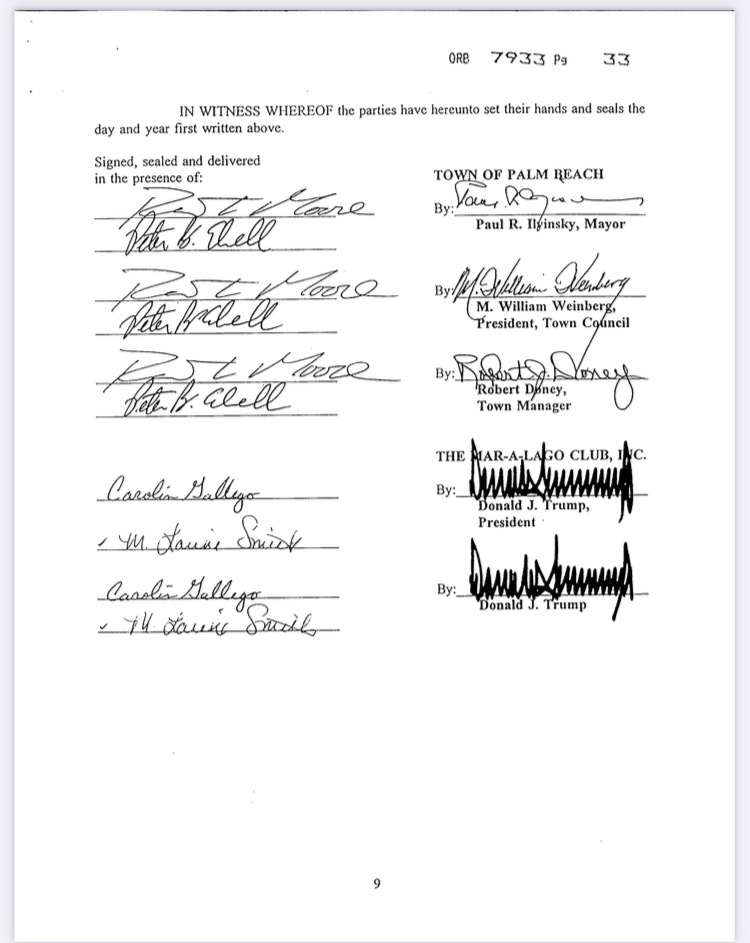 ORB 7933 Pg 33
IN WITNESS WHEREOF the parties have hereunto set their hands and seals the
day and year first written above.
Signed, sealed and delivered
in the presence of:
TOWN OF PALM BEACH
By:
Paul R. Ilyinsky, Mayor
Moore
Peter B. Elwell
By: M. William Weinberg
M. William Weinberg,
President, Town Council
Moore
Peter B. Elwell
By: Robert J. Doney
Robert Doney,
Town Manager
Moore
Peter B. Elwell
THE MAR-A-LAGO CLUB, INC.
By:
Donald J. Trump,
President
Carolin Gallego
M. Laurie Smith
By:
Donald J. Trump
Carolin Gallego
M. Laurie Smith
9